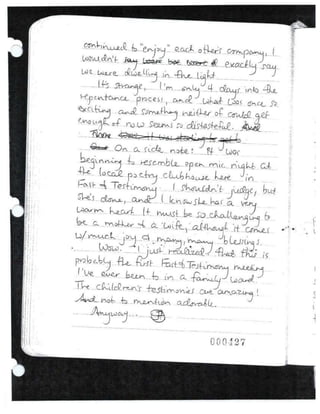 continued to "enjoy" each other's company, I
wouldn't say exactly say
we were dwelling in the light.
It's strange, I'm only 4 days into the
repentance process, and what was once so
exciting and something neither of could get
enough of now seems so distasteful. And
There
On a side note: It was
beginning to resemble open mic night at
the local poetry clubhouse here in
Fast & Testimony. I shouldn't judge, but
she's done, and I know she has a very
warm heart. It must be so challenging to
be a mother & a wife, although it comes
w/ much joy & many, many blessings.
Wow. I just realized that this is
probably the first Fast & Testimony meeting
I've ever been to in a family ward.
The children's testimonies are amazing!
And not to mention adorable.
Anyway...
000427